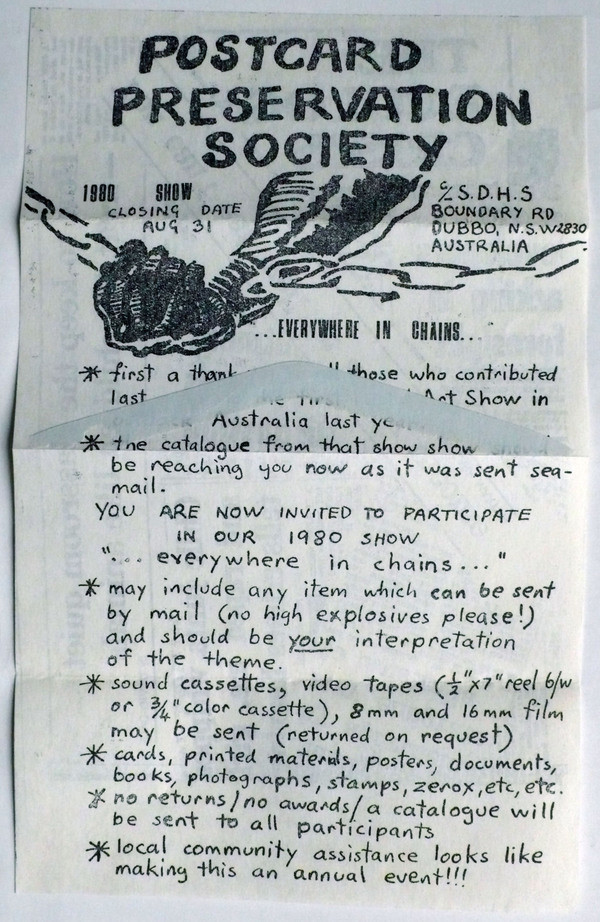 POSTCARD
PRESERVATION
SOCIETY
1980 SHOW
CLOSING DATE
AUG 31
℅ S.D.H.S
BOUNDARY RD
DUBBO, N.S.W 2830
AUSTRALIA
"...EVERYWHERE IN CHAINS..."
* first a thank those who contributed
last Art Show in
Australia last
* the catalogue from that show show
be reaching you now as it was sent sea-
mail.
YOU ARE NOW INVITED TO PARTICIPATE
IN OUR 1980 SHOW
"... everywhere in chains..."
* may include any item which can be sent
by mail (no high explosives please!)
and should be your interpretation
of the theme.
* sound cassettes, video tapes (½"x7" reel b/w
or ¾" color cassette), 8mm and 16mm film
may be sent (returned on request)
* cards, printed materials, posters, documents,
books, photographs, stamps, zerox, etc, etc.
* no returns/no awards/a catalogue will
be sent to all participants
* local community assistance looks like
making this an annual event!!!